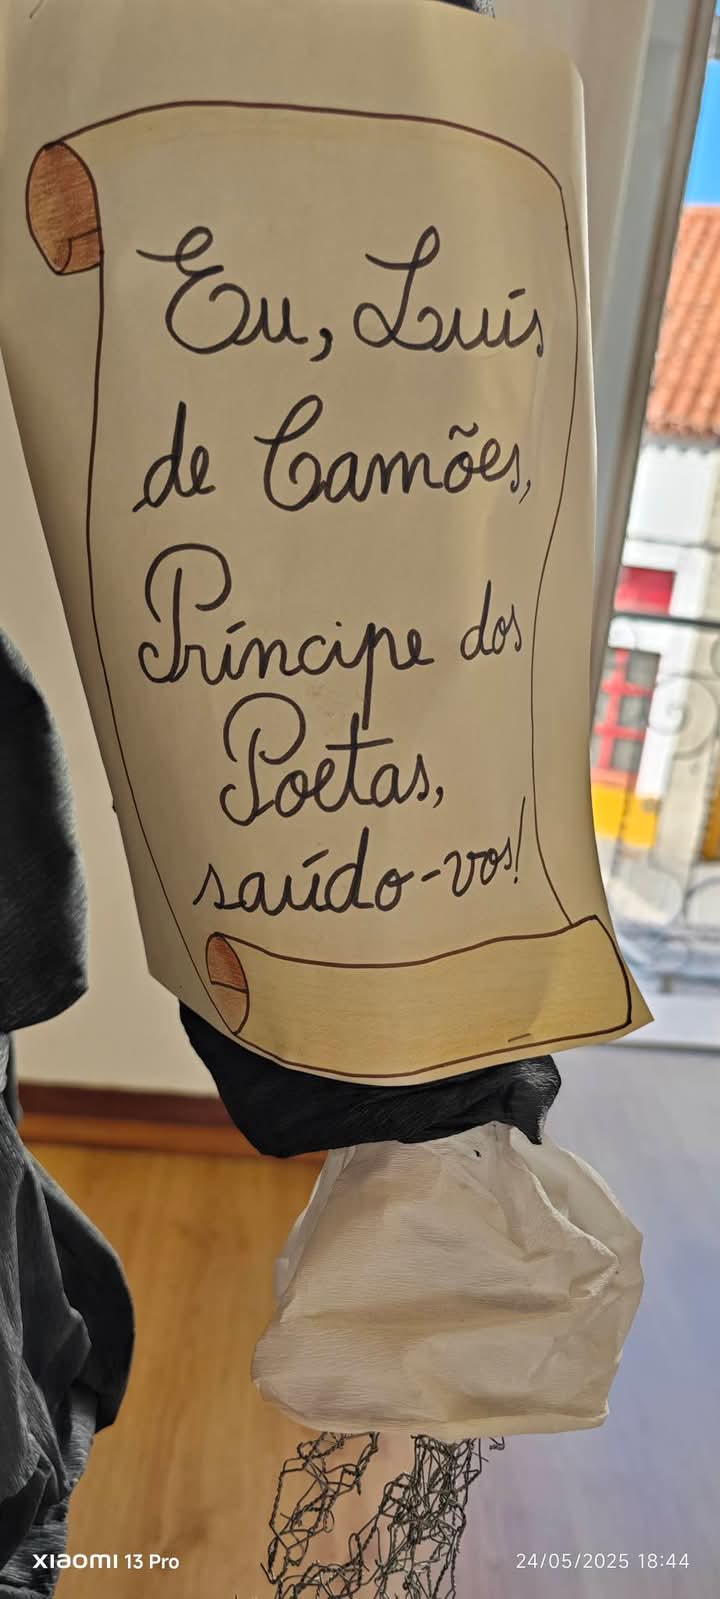 Eu, Luís
de Camões,
Príncipe dos
Poetas,
saúdo-vos!
XIAOMI 13 Pro
24/05/2025 18:44